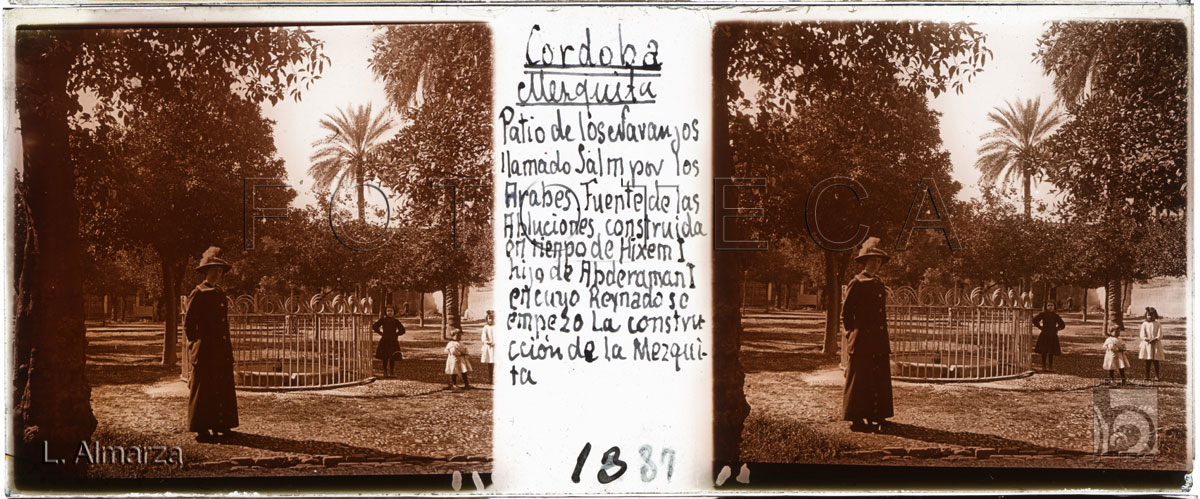 Cordoba
Mezquita
Patio de los Naranjos
llamado Salm por los
Arabes Fuente de las
Abluciones construida
en tienpo de Hixem I
hijo de Abderaman I
en cuyo Reynado se
empezo La constru
cción de la Mezqui-
ta
13 37
FOTOTECA
L. Almarza